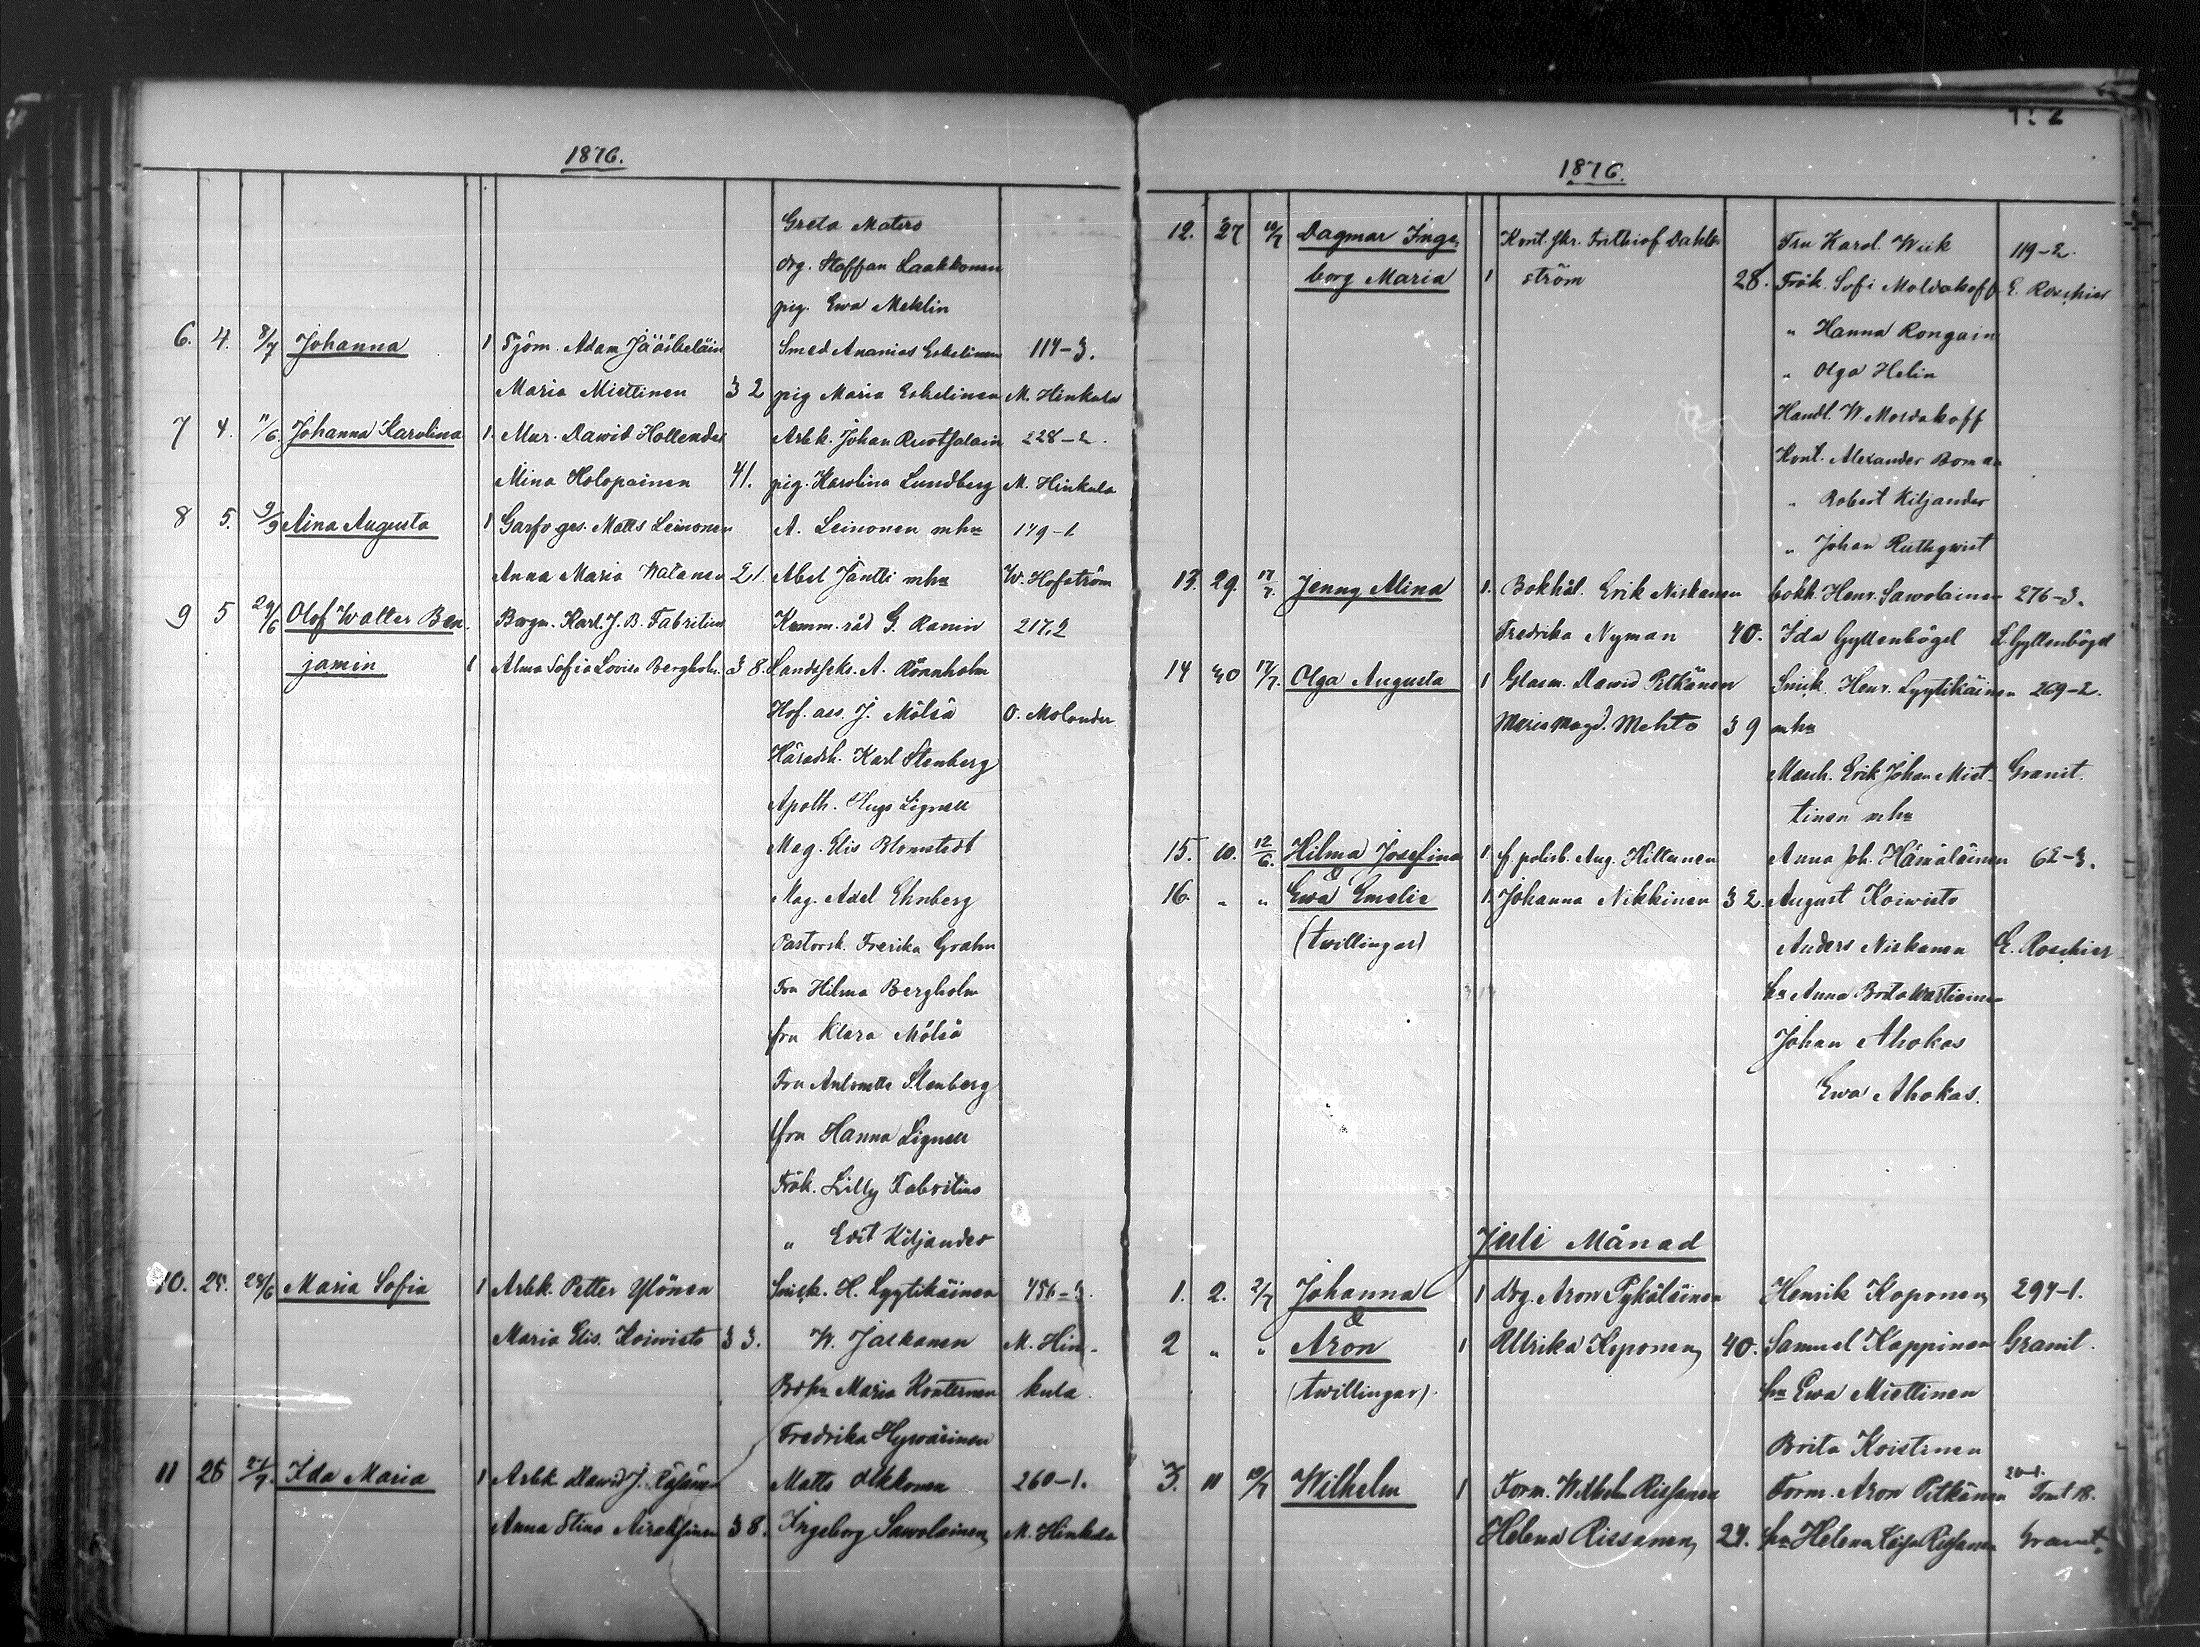 1876.
Greta Maters
drg. Staffan Laakkonen
pig. Ewa Meklin
6. 4. 8/7 Johanna 1 Tjöm. Adam Smed Ananias Eskelinen 114-3.
Maria Miettinen 32 pig Maria Eskelinen M. Hinkula
7 4. 11/6. Johanna Karolina 1. Mur. Dawid Hollender Arbk. Johan Ruotsalain 228-2.
Mina Holopainen 41. pig. Karolina Lundberg M. Hinkula
8 5. 9/9 Aina Augusta 1 Garfv. ges. Matts Leinonen A. Leinonen mhu 149-1
Anna Maria Watanen 21. Abel Jäntti mhu W. Hofström
9 5 29/6 Olof Walter Ben Borgm. Karl J. B. Fabritius Kamm. råd G. Ranin 217.2
jamin 1 Alma Sofia Lovisa Bergholm 38. Landssekr. A. Rönnholm
Hof. ass. J. Mölsä O. Molander
Häradsh. Karl Stenberg
Apoth. Hugo Lignell
Mag. Elis Blomstedt
Mag. Axel Ehnberg
Pastorsk. Frerika Grahn
Fru Hilma Bergholm
fru Klara Mölsä
Fru Antonetta Stenberg
fru Hanna Lignell
Frök. Lilly Fabritius
" Edit Kiljander
10. 25. 28/6 Maria Sofia 1 Arbk. Petter Ylönen Snick. H. Lyytikäinen 456-3
Maria Elis. Koiwisto 33. W. Jalkanen M. Hin-
Maria Kontinen kula.
Fredrika Hyvärinen
11 26 Ida Maria 1 Arbk Dawid J. Räsänen Matts Okkonen 260-1.
Anna Stina Airaksinen 38. Ingeborg Sawolainen M. Hinkula
1876.
12. 27 16/7 Dagmar Inge- Kont. skr. Frithiof Dahl- Fru Karol. Wiik 119-2.
borg Maria 1 ström 28. Frök. Sofi Moldakoff E. Roschier
" Hanna Rongain
" Olga Helin
Handl. W Moldakoff
Kont. Alexander Boman
" Robert Kiljander
" Johan Ruthqwist
13. 29. 17/7. Jenny Alina 1. Bokhål. Erik Niskanen bokh. Henr. Sawolainen 276-3.
Fredrika Nyman 40. Ida Gyllenbögel L. Gyllenbögel
14 30 17/7. Olga Augusta 1 Glasm. Dawid Pitkänen Snick. Henr. Lyytikäinen 269-2.
Maria Magd. Mehto 39 mhu
Mask. Erik Johan Miet- Granit.
tinen mhu
15. 10. 12/6. Hilma Josefina 1 f. polisb. Aug. Hiltunen Anna Joh. Hämäläinen 62-3.
&
16. " " Ewa Emelie 1. Johanna Nikkinen 32. August Koiwisto
(twillingar) Anders Niskanen E. Roschier
hu Anna Brita Wartiainen
Johan Ahokas
Ewa Ahokas.
Juli Månad
1. 2. 2/7 Johanna 1 Drg. Aron Pykäläinen Henrik Koponen 294-1.
&
2 " " Aron 1 Ullrika Koponen 40. Samuel Kappinen Granit.
(twillingar). hu Ewa Miettinen
Brita Koistinen
3. 11 Wilhelm 1 Form. Wilhelm Rissanen Form. Aron Pitkänen Tomt 18.
Helena Rissanen 24. hu Helena Rissanen Granit.